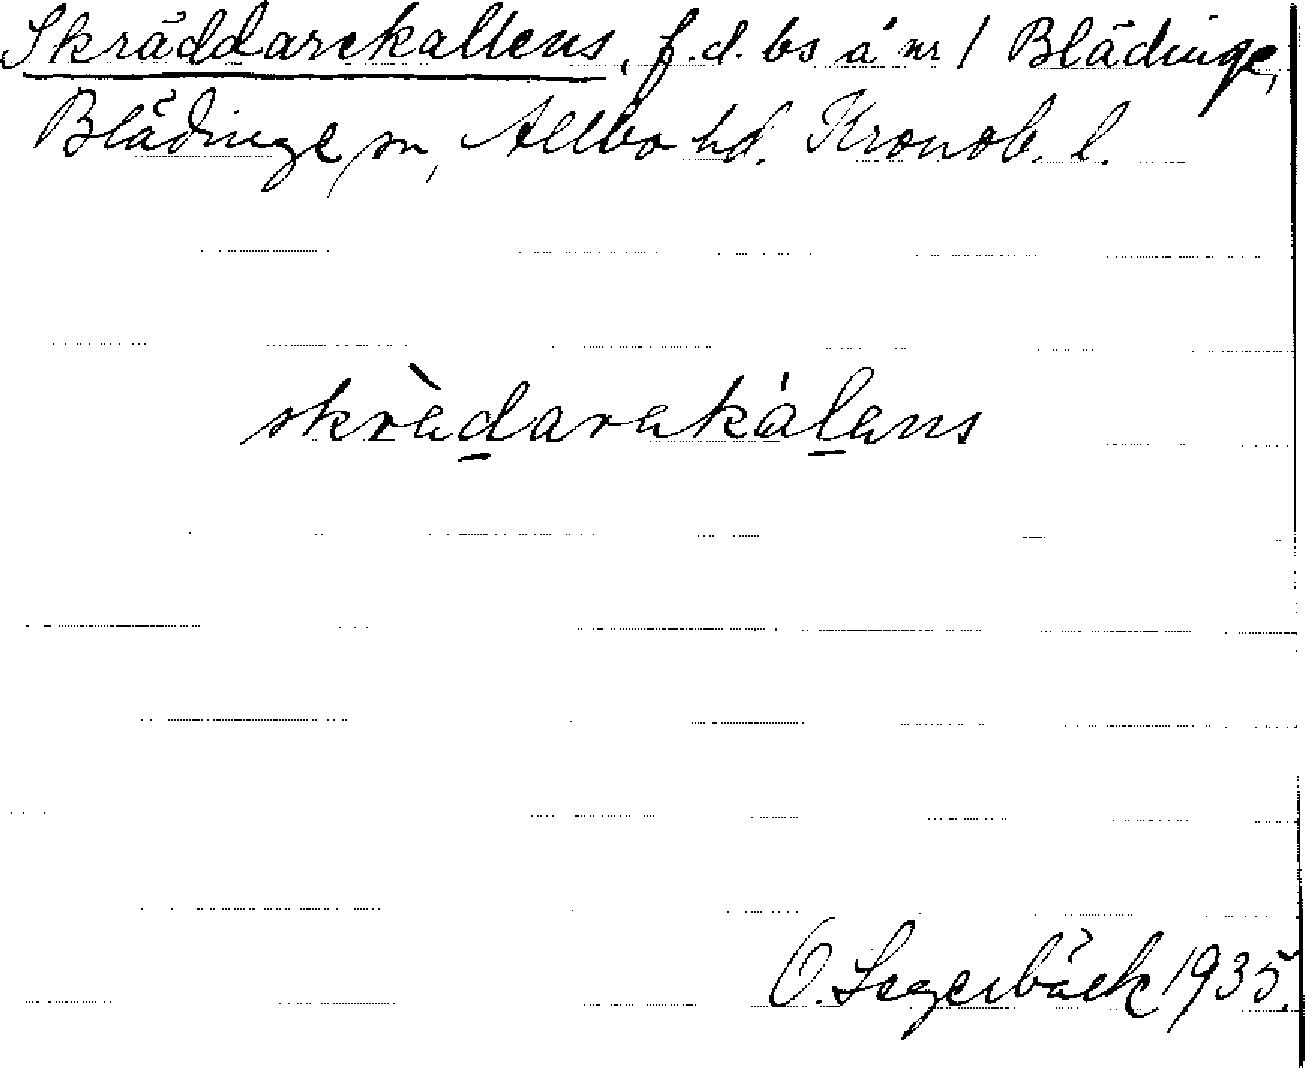 Skräddarekallens, f.d. bs å nr 1 Blädinge,
Blädinge sn, Allbo hd. Kronob. l.
skrὲdarakálans
O. Segerbäck 1935.